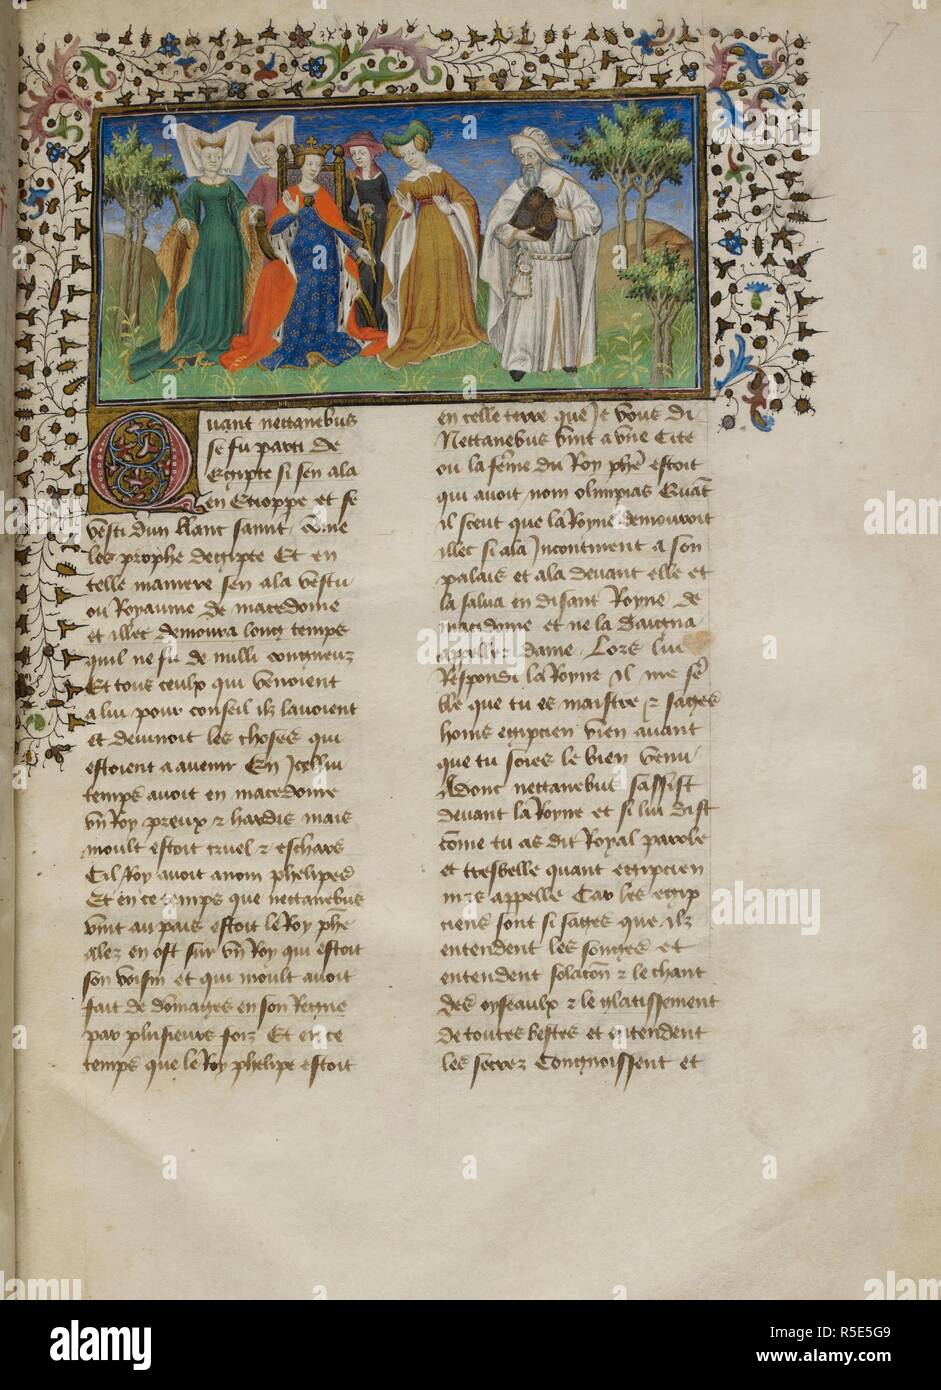 7
Quant nectanebus
se fu parti de
egipte si sen ala
en Etioppe et se
vesti dun blanc
les prophe degipte Et en
telle maniere sen ala vestu
ou Royaume de macedoine
et illec demoura long temps
quil ne fu de nulli congneuz
Et tous ceulx qui venoient
a lui pour conseil ilz lavoient
et devinoit les choses qui
estoient a avenir En Icellui
temps avoit en macedoine
un Roy preux & hardis mais
moult estoit cruel & eschars
Cil Roy avoit a nom phelipes
Et en ce temps que nectanebus
vint au pais estoit le Roy phe
alez en ost sur un Roy qui estoit
son voisin et qui moult avoit
fait de domages en son Regne
par plusieurs foiz Et en ce
temps que le Roy phelipe estoit
en celle terre que Je vous di
Nectanebus vint a une Cite
ou la feme du Roy phe estoit
qui avoit nom olimpias Quat
il sceut que la Royne demouroit
illec si ala Incontinent a son
palais et ala devant elle et
la salua en disant Royne de
macidoine et ne la daigna
appeller dame Lors lui
Respondi la Royne Il me se
ble que tu es maistre & sages
homs egipcien vien avant
que tu soies le bien venu
Adonc nectanebus sassist
devant la Royne et si lui dist
come tu as dit Royal parole
et tresbelle quant egipcien
mas appelle Car les egip
ciens sont si sages que ilz
entendent les songes et
entendent & le chant
des oyseaulx & le glatissement
de toutes bestes et entendent
les secrez Congnoissent et
alamy
Image ID: R5E5G9
www.alamy.com